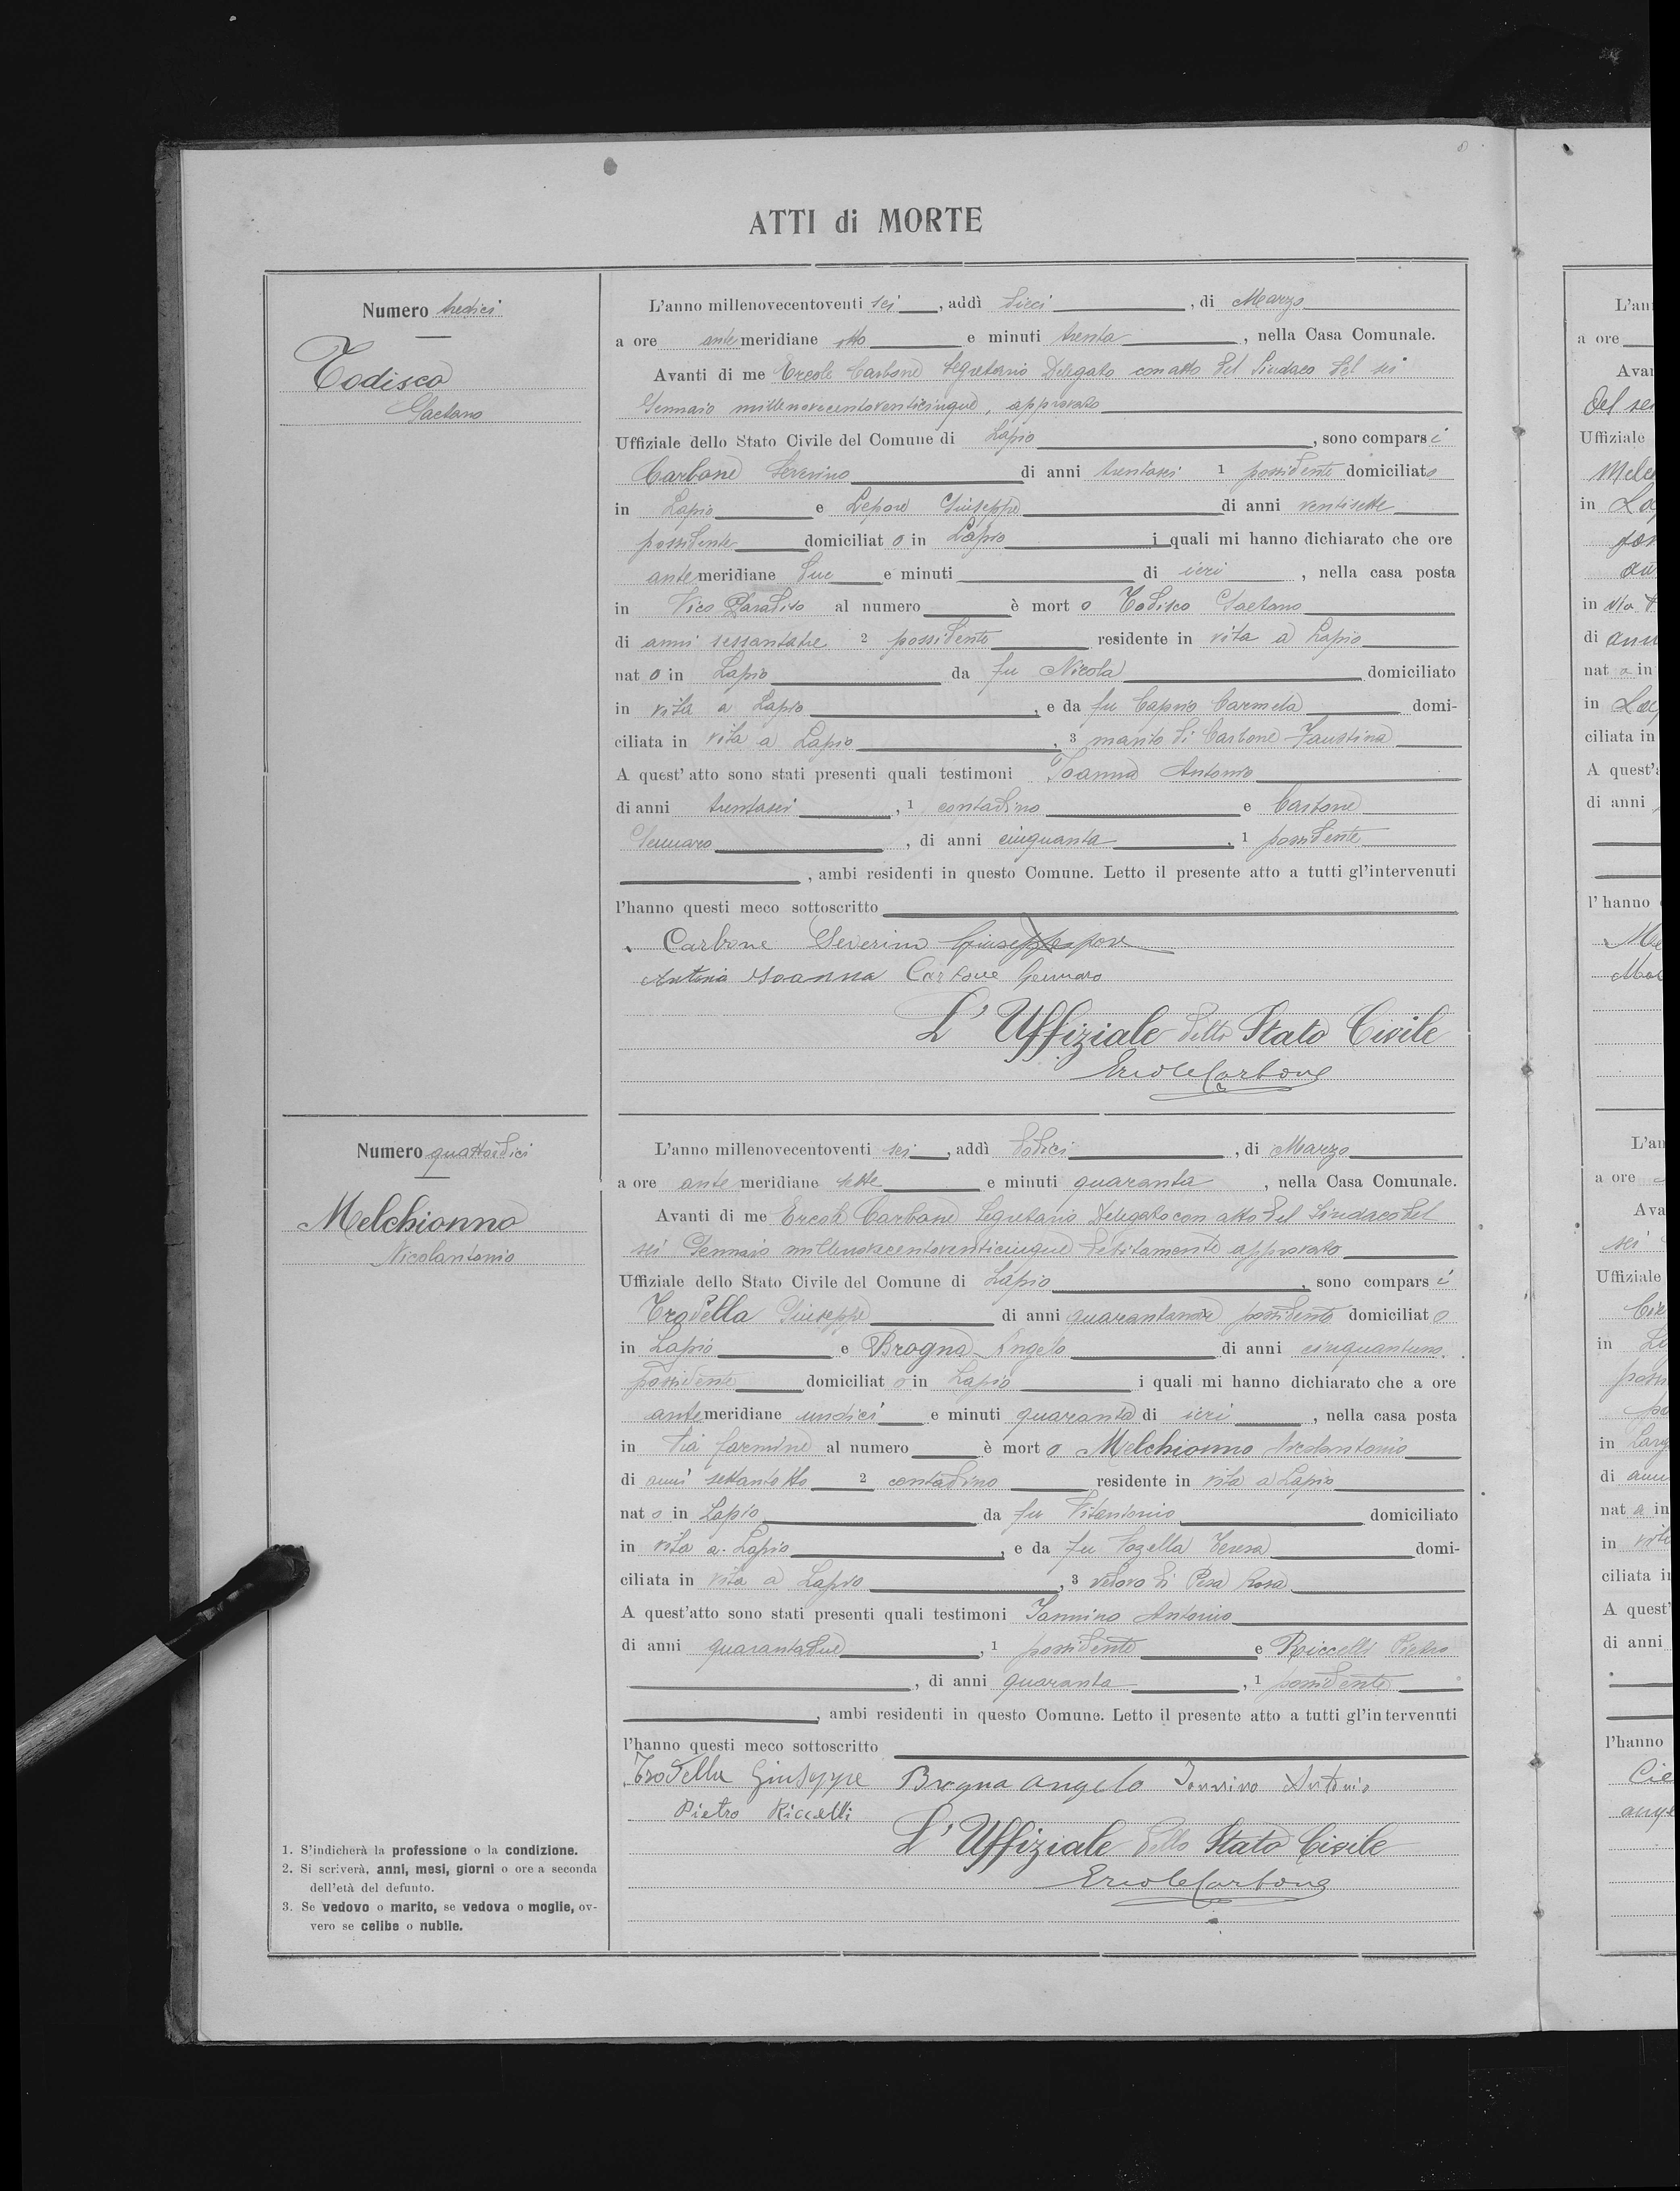 ATTI di MORTE
Numero tredici
Todisco
Gaetano
L'anno millenovecentoventi sei, addì dieci, di Marzo
a ore antemeridiane otto e minuti trenta, nella Casa Comunale.
Avanti di me Ercole Carbone Segretario Delegato con atto del Sindaco del sei
Gennaio millenovecentoventicinque, approvato
Uffiziale dello Stato Civile del Comune di Lapio, sono comparsi
Carbone Severino di anni trentasei 1 possidente domiciliato
in Lapio e Lepore Giuseppe di anni ventisette
possidente domiciliato in Lapio i quali mi hanno dichiarato che ore
antemeridiane due e minuti di ieri, nella casa posta
in Vico Paradiso al numero è morto Todisco Gaetano
di anni sessantatre 2 possidente residente in vita a Lapio
nato in Lapio da fu Nicola domiciliato
in vita a Lapio, e da fu Caprio Carmela domi-
ciliata in vita a Lapio, 3 marito di Carbone Faustina
A quest'atto sono stati presenti quali testimoni Ioanna Antonio
di anni trentasei, 1 contadino e Carbone
Gennaro, di anni cinquanta, 1 possidente
, ambi residenti in questo Comune. Letto il presente atto a tutti gl'intervenuti
l'hanno questi meco sottoscritto
Carbone Severino Giuseppe Lepore
Antonio Ioanna Carbone Gennaro
L'Uffiziale dello Stato Civile
Ercole Carbone
Numero quattordici
Melchionno
Nicolantonio
L'anno millenovecentoventi sei, addì dodici, di Marzo
a ore antemeridiane sette e minuti quaranta, nella Casa Comunale.
Avanti di me Ercole Carbone Segretario Delegato con atto del Sindaco del
sei Gennaio millenovecentoventicinque debitamente approvato
Uffiziale dello Stato Civile del Comune di Lapio, sono comparsi
Trodella Giuseppe di anni possidente domiciliato
in Lapio e Brogna Angelo di anni cinquantuno
possidente domiciliato in Lapio i quali mi hanno dichiarato che a ore
antemeridiane undici e minuti quaranta di ieri, nella casa posta
in Via Carmine al numero è morto Melchionno Nicolantonio
di anni settantotto 2 contadino residente in vita a Lapio
nato in Lapio da fu Vitantonio domiciliato
in vita a Lapio, e da fu Teresa domi-
ciliata in vita a Lapio, 3 vedovo di Pesa Rosa
A quest'atto sono stati presenti quali testimoni Iannino Antonio
di anni quarantadue, 1 possidente e Riccelli Pietro
, di anni quaranta, 1 possidente
, ambi residenti in questo Comune. Letto il presente atto a tutti gl'intervenuti
l'hanno questi meco sottoscritto
Trodella Giuseppe Brogna Angelo Iannino Antonio
Pietro Riccelli
L'Uffiziale dello Stato Civile
Ercole Carbone
1. S'indicherà la professione o la condizione.
2. Si scriverà, anni, mesi, giorni o ore a seconda
dell'età del defunto.
3. Se vedovo o marito, se vedova o moglie, ov-
vero se celibe o nubile.